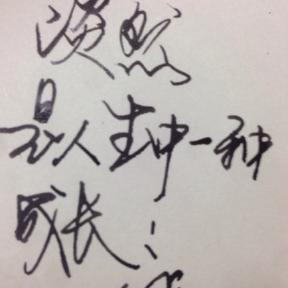 淡然
是人生中一种
成长；